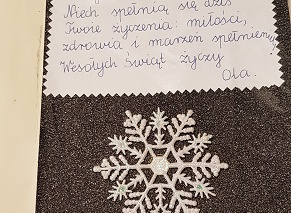 Niech spełnią się dziś
Twoje życzenia: miłości,
zdrowia i marzeń spełnienia
Wesołych Świąt życzy
Ola.